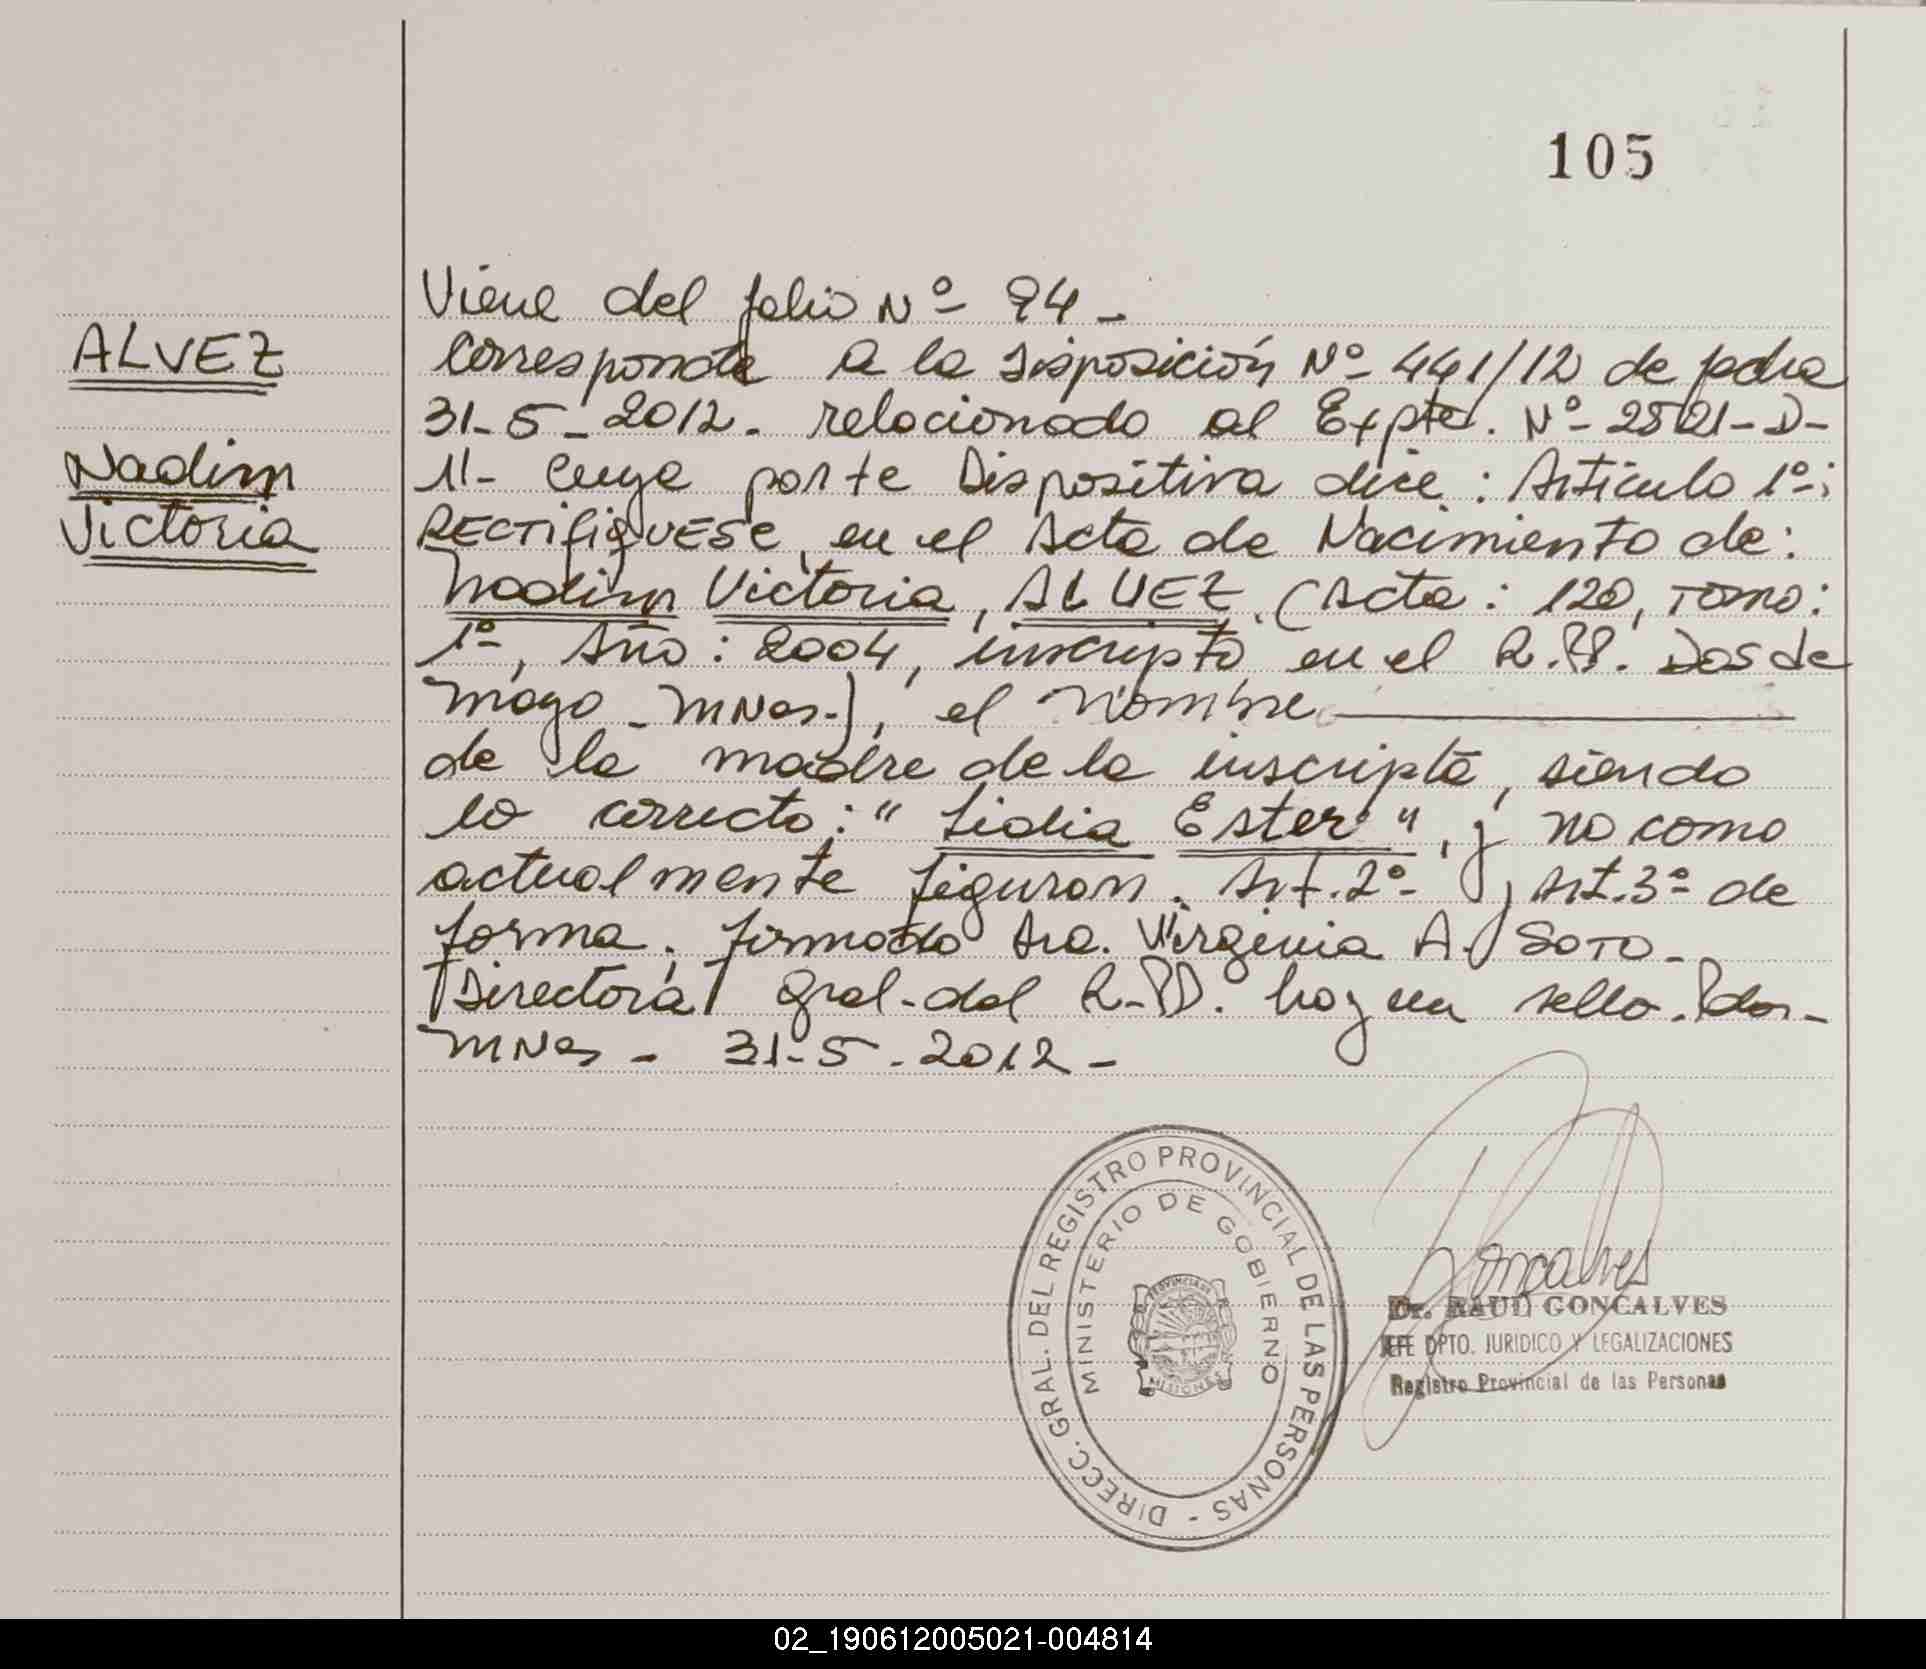 105
ALVEZ
Nadim
Victoria
Viene del folio Nº 94 -
Corresponde a la Disposición Nº 441/12 de fecha
31-5-2012. relacionado al Expte. Nº - 2521-D-
11- Cuya parte Dispositiva dice: Artículo 1º:
RECTIFIQUESE, en el Acta de Nacimiento de:
Nadim Victoria, ALVEZ. (Acta: 120, Tomo:
1º, Año: 2004, inscripto en el R.PP. Dos de
mayo - Mnes.), el Nombre
de la madre de la inscripta, siendo
lo correcto: "Lidia Ester", y no como
actualmente figuran. Art. 2º y Art. 3º de
forma. firmado Sra. Virginia A. SOTO -
Directora Gral. del R.PP. hay un sello. Pdas-
Mnes - 31-5-2012 -
DIRECC. GRAL. DEL REGISTRO PROVINCIAL DE LAS PERSONAS -
MINISTERIO DE GOBIERNO
PROVINCIA
MISIONES
Goncalves
Dr. RAUL GONCALVES
JEFE DPTO. JURIDICO Y LEGALIZACIONES
Registro Provincial de las Personas
02_190612005021-004814